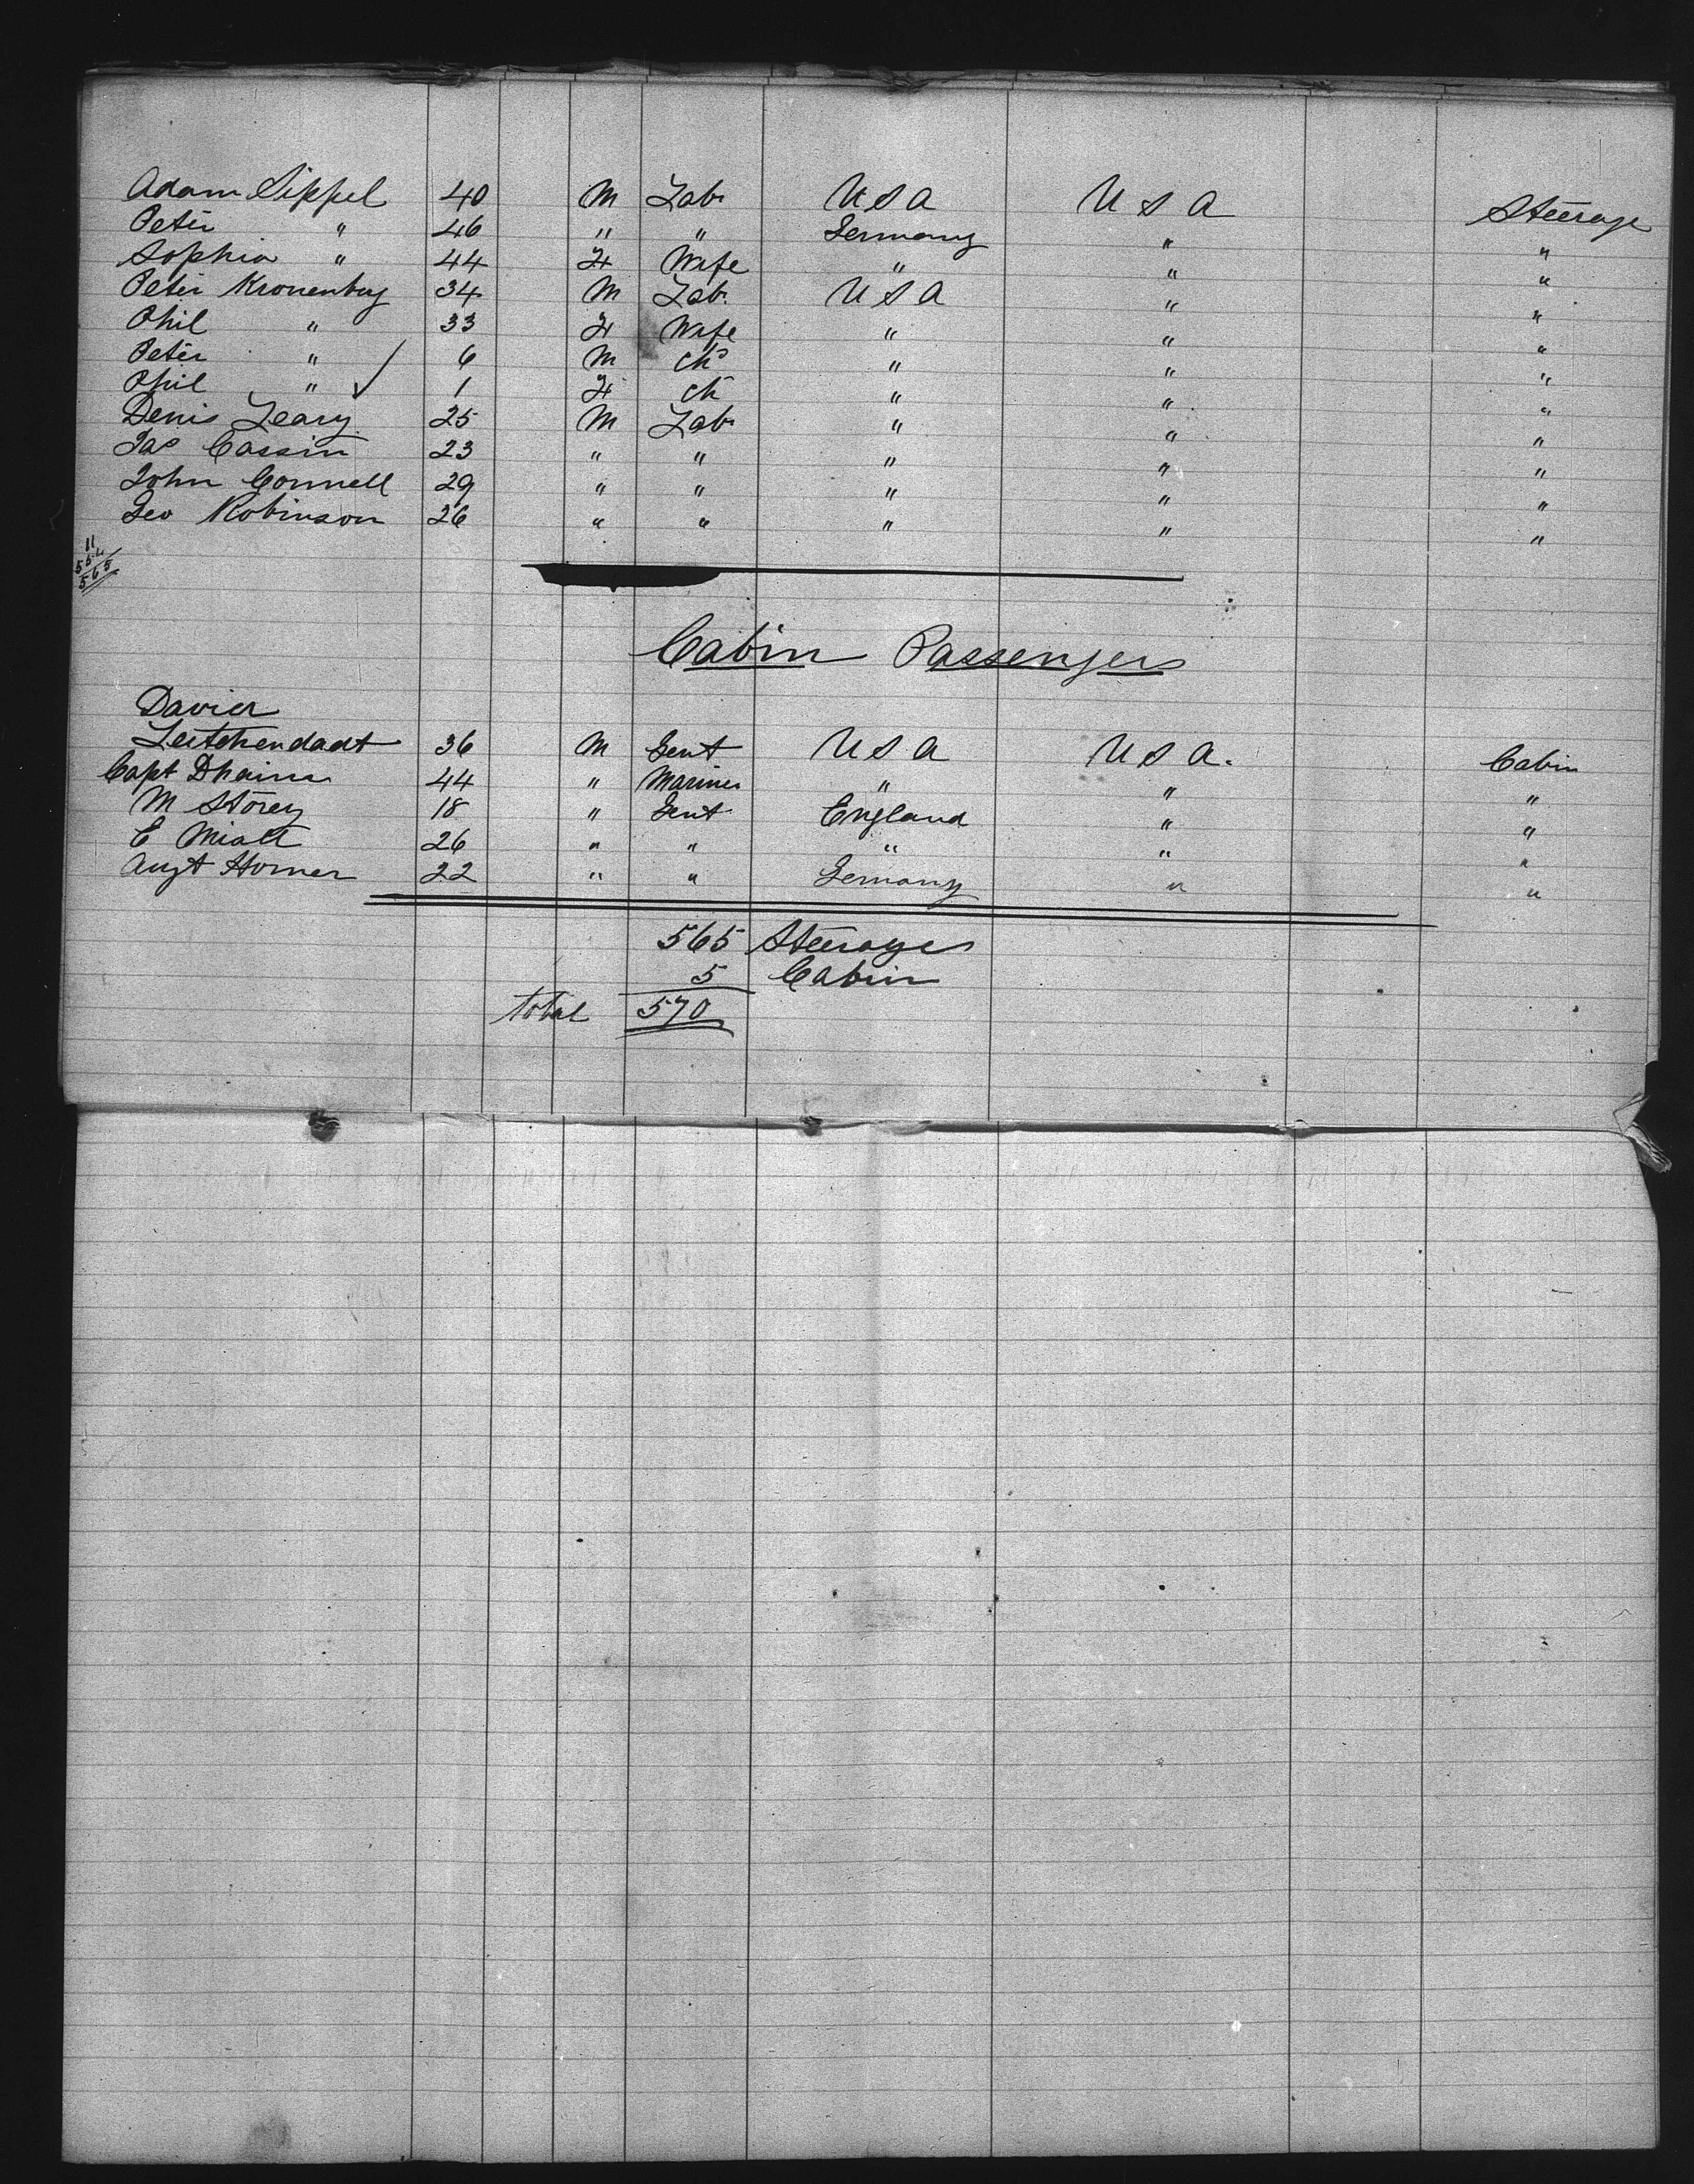 Adam Sippel 40 M Lab. U S A U S A Steerage
Peter " 46 " " Germany " "
Sophia " 44 F Wife " " "
Peter Kronenberg 34 M Lab. U S A " "
Phil " 33 F Wife " " "
Peter " 6 M ch " " "
Phil " 1 F ch " " "
Denis Leary 25 M Lab. " " "
Jas Cassin 23 " " " " "
John Connell 29 " " " " "
Geo Robinson 26 " " " " "
11
554
565
Cabin Passengers
36 M Gent U S A U S A. Cabin
Capt 44 " Mariner " " "
M Storey 18 " Gent England " "
E Miall 26 " " " " "
Augt Horner 22 " " Germany " "
565 Steerage
5 Cabin
total 570